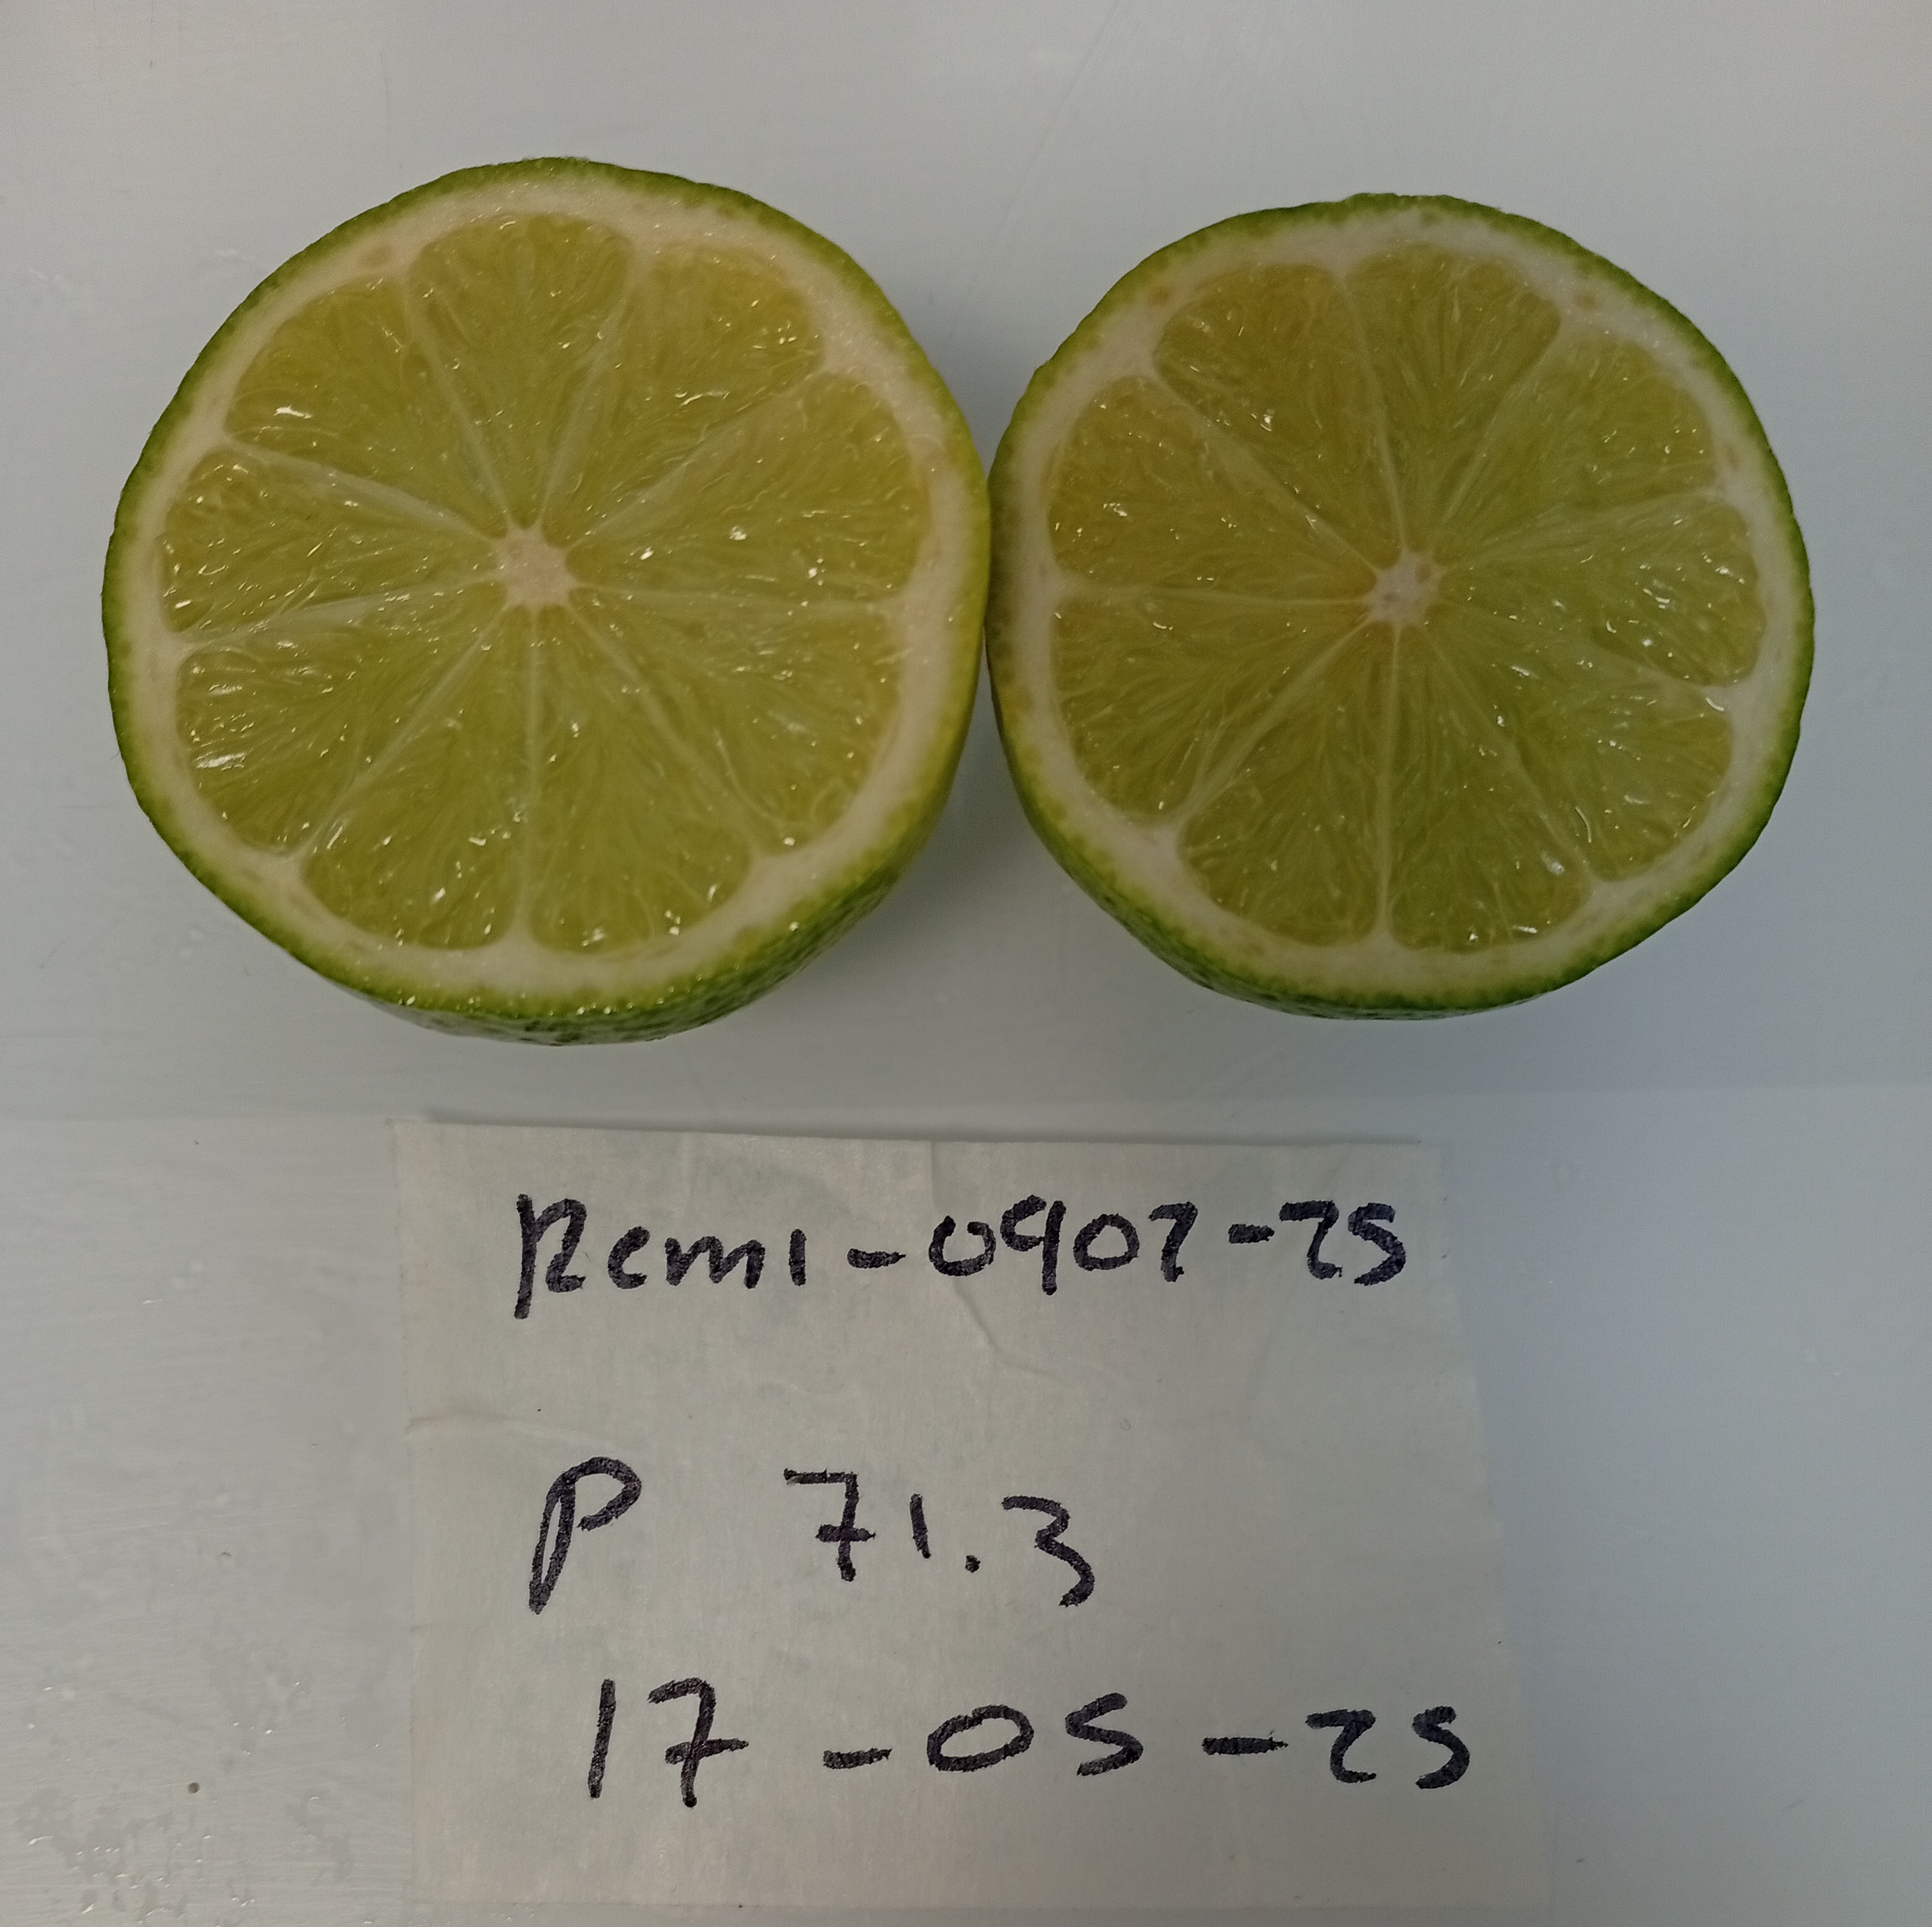 Remi-0907-25
P 71.3
17-05-25